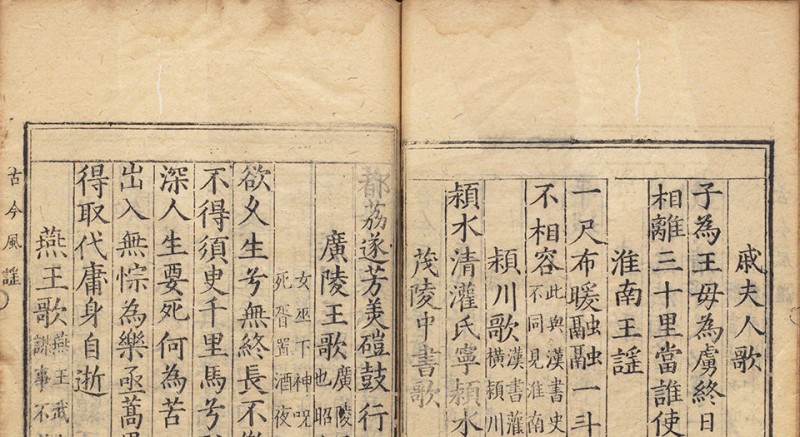 戚夫人歌
子為王毋為虜終日
相離三十里當誰使
淮南王謠
一尺布暖融融一斗
不相容
此與漢書史
不同見淮南
頴川歌
漢書灌
橫頴川
頴水清灌氏寧頴水
茂陵中書歌
都荔遂芳美磑鼓行
廣陵王歌
廣陵
也昭
女巫下神呪
死胥置酒夜
欲久生兮無終長不
不得須臾千里馬兮
深人生要死何為苦
出入無悰為樂亟蒿
得取代庸身自逝
燕王歌
燕王武
謀事不
古今風謠